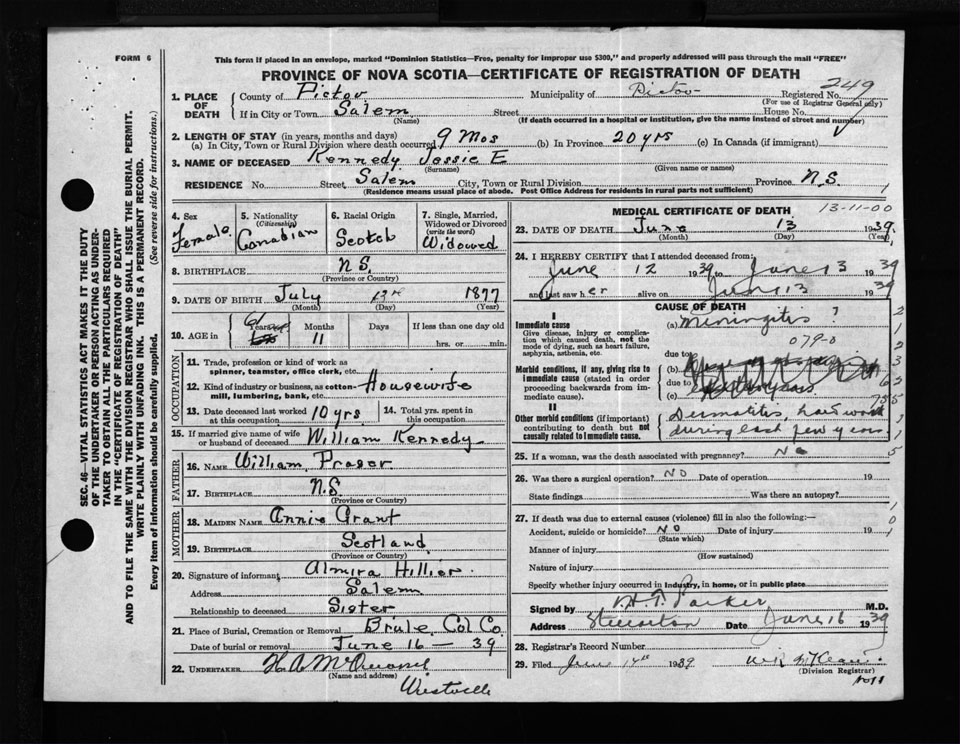 FORM 6
This form if placed in an envelope, marked "Dominion Statistics—Free, penalty for improper use $300," and properly addressed will pass through the mail "FREE"
PROVINCE OF NOVA SCOTIA—CERTIFICATE OF REGISTRATION OF DEATH
249
1. PLACE OF DEATH County of Pictou Municipality of Pictou Registered No.
(For use of Registrar General only)
If in City or Town Salem Street House No.
(Name) (If death occurred in a hospital or institution, give the name instead of street and number)
2. LENGTH OF STAY (in years, months and days)
(a) In City, Town or Rural Division where death occurred 9 Mos (b) In Province 20 yrs (c) In Canada (if immigrant)
3. NAME OF DECEASED Kennedy Jessie E
(Surname) (Given name or names)
RESIDENCE No. Street Salem City, Town or Rural Division Province N.S.
(Residence means usual place of abode. Post Office Address for residents in rural parts not sufficient)
4. Sex Female
5. Nationality (Citizenship) Canadian
6. Racial Origin Scotch
7. Single, Married, Widowed or Divorced (write the word) Widowed
8. BIRTHPLACE N.S.
(Province or Country)
9. DATE OF BIRTH July 13th 1877
(Month) (Day) (Year)
10. AGE in 61 Years 11 Months Days If less than one day old
hrs. or min.
OCCUPATION
11. Trade, profession or kind of work as spinner, teamster, office clerk, etc.
12. Kind of industry or business, as cotton-mill, lumbering, bank, etc. Housewife
13. Date deceased last worked at this occupation 10 yrs 14. Total yrs. spent in this occupation
15. If married give name of wife or husband of deceased William Kennedy
FATHER
16. NAME William Fraser
17. BIRTHPLACE N.S.
(Province or Country)
MOTHER
18. MAIDEN NAME Annie Grant
19. BIRTHPLACE Scotland
(Province or Country)
20. Signature of informant Almira Hillier
Address Salem
Relationship to deceased Sister
21. Place of Burial, Cremation or Removal Brule Col Co
Date of burial or removal June 16 - 39
22. UNDERTAKER H A
(Name and address)
Westville
MEDICAL CERTIFICATE OF DEATH 13-11-00
23. DATE OF DEATH June 13 1939
(Month) (Day) (Year)
24. I HEREBY CERTIFY that I attended deceased from:
June 12 1939 to June 13 1939
and last saw her alive on June 13 1939
CAUSE OF DEATH
I
Immediate cause
Give disease, injury or complication which caused death, not the mode of dying, such as heart failure, asphyxia, asthenia, etc.
(a) Meningitis ?
079-0
due to
Morbid conditions, if any, giving rise to immediate cause (stated in order proceeding backwards from immediate cause).
(b)
due to
(c)
II
Other morbid conditions (if important) contributing to death but not causally related to immediate cause.
Dermatitis, hard work
during last few years
25. If a woman, was the death associated with pregnancy? No
26. Was there a surgical operation? No Date of operation 19
State findings Was there an autopsy?
27. If death was due to external causes (violence) fill in also the following:—
Accident, suicide or homicide? No Date of injury 19
(State which)
Manner of injury
(How sustained)
Nature of injury
Specify whether injury occurred in industry, in home, or in public place
Signed by H.T. Parker M.D.
Address Stellarton Date June 16 1939
28. Registrar's Record Number
29. Filed June 17th 1939
(Division Registrar)
SEC. 46—VITAL STATISTICS ACT MAKES IT THE DUTY
OF THE UNDERTAKER OR PERSON ACTING AS UNDER-
TAKER TO OBTAIN ALL THE PARTICULARS REQUIRED
IN THE "CERTIFICATE OF REGISTRATION OF DEATH"
AND TO FILE THE SAME WITH THE DIVISION REGISTRAR WHO SHALL ISSUE THE BURIAL PERMIT.
WRITE PLAINLY WITH UNFADING INK. THIS IS A PERMANENT RECORD.
Every item of information should be carefully supplied. (See reverse side for instructions.)